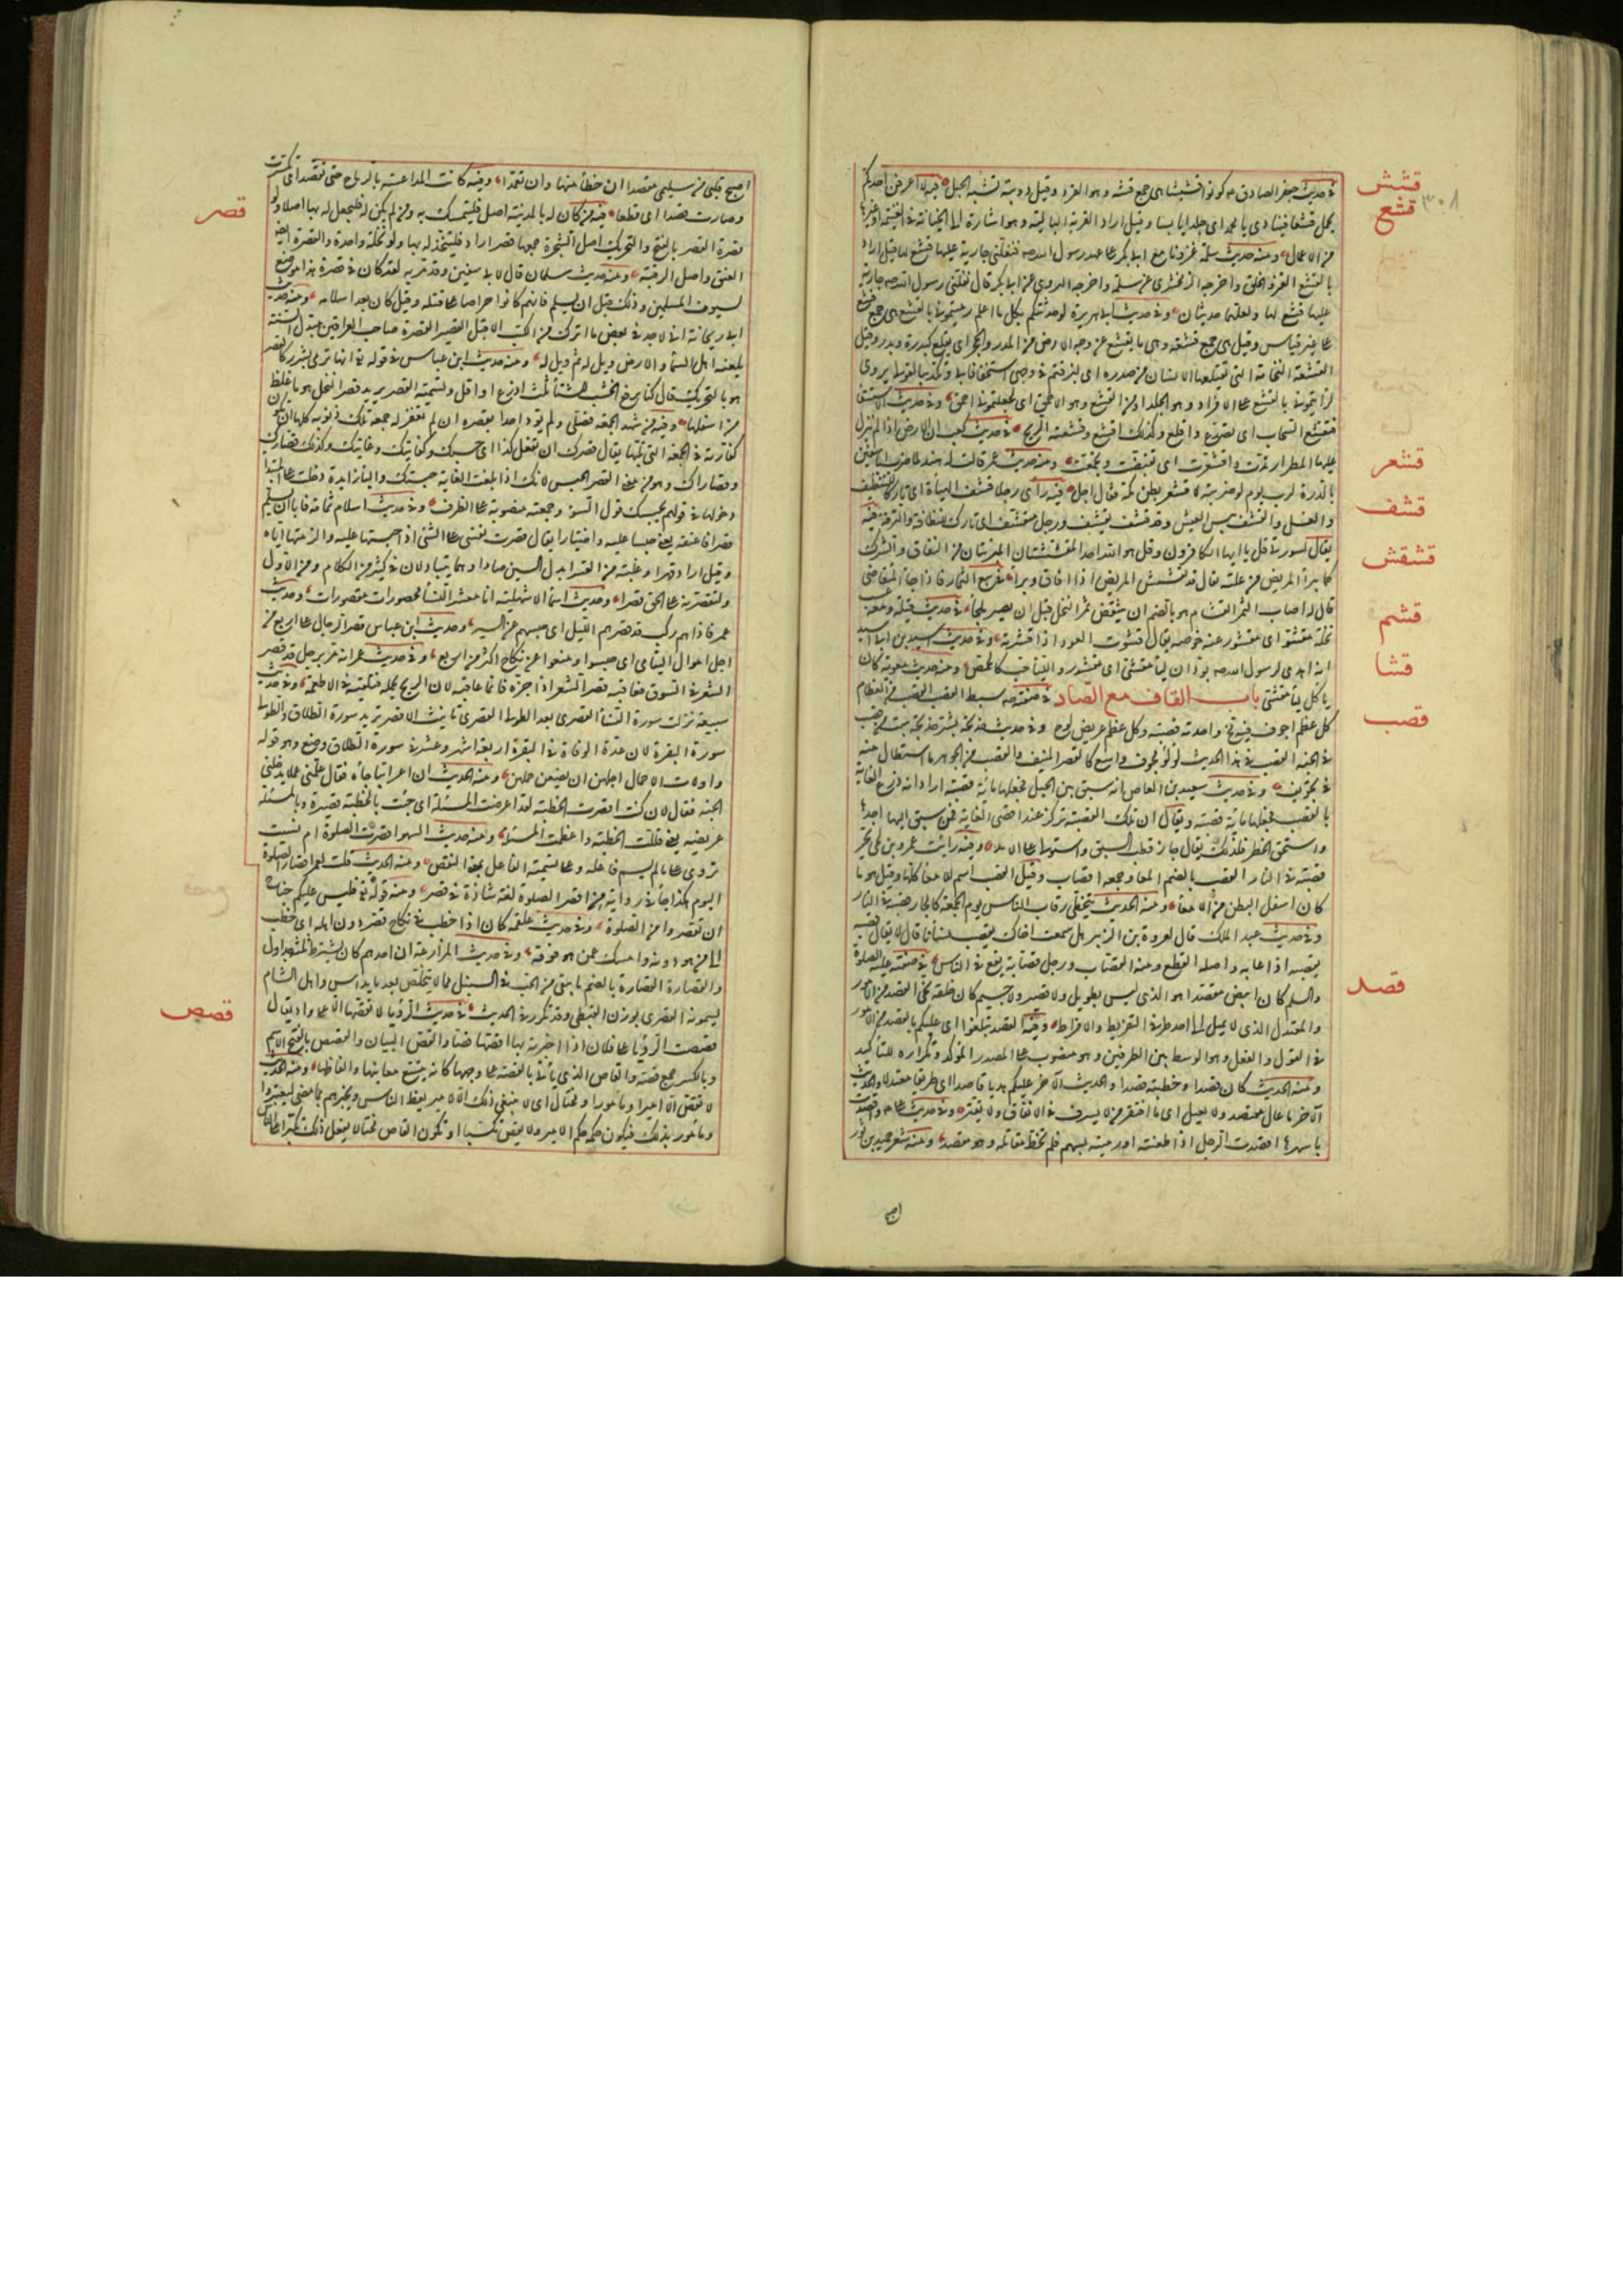 قشش
قشع
٣٠٨
قشعر
قشف
قشقش
قشم
قشا
قصب
قصد
في حديث جعفر الصادق كونوا قششا هي جمع قشة وهو القرد وقيل دويبة تشبه الجعل فيه لا اعرفن احدكم
يحمل قشعا فينادي يا محمد اي جلدا يابسا وقيل اراد القربة البالية وهو اشارة الى الخيانة في الغنيمة او غيرها
من الاعمال ومنه حديث سلمة غزونا مع ابي بكر على عهد رسول الله فنفلني جارية عليها قشع لها قيل اراد
بالقشع الفرو الخلق واخرجه الزمخشري عن سلمة واخرجه الهروي عن ابي بكر قال نفلني رسول الله جارية
عليها قشع لها ولعلهما حديثان وفي حديث ابي هريرة لو حدثتكم بكل ما اعلم رميتموني بالقشع هي جمع قشع
على غير قياس وقيل هي جمع قشعة وهي ما يقشع عن وجه الارض من المدر والحجر اي يقلع كبدرة وبدر وقيل
القشعة النخامة التي يقتلعها الانسان من صدره اي لبزقتم في وجهي استخفافا بي وتكذيبا لقولي ويروى
لرميتموني بالقشع على الافراد وهو الجلد او من القشع وهو الاحمق اي لجعلتموني احمق وفي حديث الاستسقا
فتقشع السحاب اي تصدع واقلع وكذلك اقشع وقشعته الريح في حديث كعب ان الارض اذا لم ينزل
عليها المطر اربدت واقشعرت اي تقبضت وتجمعت ومنه حديث عمر قالت له هند لما ضرب ابا سفين
بالدرة لرب يوم لو ضربته لاقشعر بطن مكة فقال اجل فيه رأى رجلا قشف الهيأة اي تاركا للتنظيف
والغسل والقشف يبس العيش وقد قشف يقشف ورجل متقشف اي تارك للنظافة والترفه فيه
يقال لسورتي قل يا ايها الكافرون وقل هو الله احد المقشقشتان اي المبريتان من النفاق والشرك
كما يبرأ المريض من علته يقال قد تقشقش المريض اذا افاق وبرأ في بيع الثمار فاذا جاء المتقاضي
قال له اصاب الثمر القشام هو بالضم ان ينتقض ثمر النخل قبل ان يصير بلحا في حديث قيلة ومعه عسيب
نخلة مقشو اي مقشور عنه خوصه يقال قشوت العود اذا قشرته وفي حديث اسيد بن ابي اسيد
انه اهدى لرسول الله بودان لياء مقشى اي مقشور واللياء حب كالحمص ومنه حديث معوية كان
يأكل لياء مقشى باب القاف مع الصاد في صفته سبط القصب القصب من العظام
كل عظم اجوف فيه مخ واحدته قصبة وكل عظم عريض لوح وفي حديث خديجة بشر خديجة ببيت من قصب
في الجنة القصب في هذا الحديث لؤلؤ مجوف واسع كالقصر المنيف والقصب من الجوهر ما استطال منه
في تجويف وفي حديث سعيد بن العاص انه سبق بين الخيل فجعلها مائة قصبة اراد انه ذرع الغاية
بالقصب فجعلها مائة قصبة ويقال ان تلك القصبة تركز عند اقصى الغاية فمن سبق اليها اخذها
واستحق الخطر فلذلك يقال حاز قصب السبق واستولى على الامد وفيه رأيت عمرو بن لحي يجر
قصبه في النار القصب بالضم المعا وجمعه اقصاب وقيل القصب اسم للامعاء كلها وقيل هو ما
كان اسفل البطن من الامعاء ومنه الحديث يتخطى رقاب الناس يوم الجمعة كالجار قصبه في النار
وفي حديث عبد الملك قال لعروة بن الزبير هل سمعت اخاك يقصب نسائنا قال لا يقال قصبه
يقصبه اذا عابه واصله القطع ومنه القصاب ورجل قصابة يقع في الناس في صفته عليه الصلوة
والسلم كان ابيض مقصدا هو الذي ليس بطويل ولا قصير ولا جسيم كان خلقه نحي القصد من الامور
والمعتدل الذي لا يميل الى احد طرفي التفريط والافراط وفيه القصد تبلغوا اي عليكم بالقصد من الامور
في القول والفعل وهو الوسط بين الطرفين وهو منصوب على المصدر المؤكد وتكراره للتأكيد
ومنه الحديث كان قصدا وخطبته قصدا والحديث الآخر عليكم هديا قاصدا اي طريقا معتدلا والحديث
الآخر ما عال مقتصد ولا يعيل اي ما افتقر من لا يسرف في الانفاق ولا يقتر وفي حديث علي واقصدت
باسهمها اقصدت الرجل اذا طعنته او رميته بسهم فلم تخطئ مقاتله وهو مقصد ومنه شعر حميد بن ثور
قصر
قصص
اصبح قلبي من سليمى مقصدا ان خطأ منها وان تعمدا وفيه كانت المداعسة بالرماح حتى تقصدت اي تكسرت
وصارت قصدا اي قطعا فيه من كان له بالمدينة اصل فليتمسك به ومن لم يكن له فليجعل له بها اصلا ولو
قصرة القصر بالفتح والتحريك اصل الشجرة جمعها قصر اراد فليتخذ له بها ولو نخلة واحدة والقصرة ايضا
العنق واصل الرقبة ومنه حديث سلمان قال لابي سفين وقد مر به لقد كان في قصرة هذا مواضع
لسيوف المسلمين وذلك قبل ان يسلم فانهم كانوا حراصا على قتله وقيل كان بعد اسلامه ومنه حديث
ابي ريحانة اني لاجد في بعض ما انزل من الكتب الاقبل القصير القصرة صاحب العراقين مبدل السنة
يلعنه اهل السماء والارض ويل له ثم ويل له ومنه حديث ابن عباس في قوله تع انها ترمي بشرر كالقصر
هو بالتحريك قال كنا نرفع الخشب للشتاء ثلث اذرع او اقل ونسميه القصر يريد قصر النخل هو ما غلظ
من اسفلها وفيه من شهد الجمعة فصلى ولم يؤذ احدا بقصره ان لم تغفر له جمعته تلك ذنوبه كلها ان تكون
كفارته في الجمعة التي تليها يقال قصرك ان تفعل كذا اي حسبك وكفايتك وغايتك وكذلك قصارك
وقصاراك وهو من معنى القصر الحبس لانك اذا بلغت الغاية حبستك والباء زايدة دخلت على المبتدا
دخولها في قولهم بحسبك قول السوء وجمعته منصوبة على الظرف وفي حديث اسلام ثمامة فابى ان يسلم
قصرا فاعتقه يعني حبسا عليه واختيارا يقال قصرت نفسي على الشئ اذا حبستها عليه والزمتها اياه
وقيل اراد قهرا وغلبة من القسر ابدل السين صادا وهما يتبادلان في كثير من الكلام ومن الاول
ولتقصرنه على الحق قصرا وحديث اسماء الاشهلية انا معشر النساء محصورات مقصورات وحديث
عمر فاذا هم ركب قد قصر بهم الليل اي حبسهم عن السير وحديث ابن عباس قصر الرجال على اربع من
اجل اموال اليتامى اي حبسوا ومنعوا عن نكاح اكثر من اربع وفي حديث عمر انه مر برجل قد قصر
الشعر في السوق فعاقبه قصر الشعر اذا جزه فانما عاقبه لان الريح تحمله فتلقيه في الاطعمة وفي حديث
سبيعة نزلت سورة النساء القصرى بعد الطولى القصرى تانيث الاقصر تريد سورة الطلاق والطولى
سورة البقرة لان عدة الوفاة في البقرة اربعة اشهر وعشر وفي سورة الطلاق وضع وهو قوله
واولات الاحمال اجلهن ان يضعن حملهن ومنه الحديث ان اعرابيا جاءه فقال علمني عملا يدخلني
الجنة فقال لان كنت اقصرت الخطبة لقد اعرضت المسئلة اي جئت بالخطبة قصيرة وبالمسئلة
عريضة يعني قللت الخطبة واعظمت المسئلة ومنه حديث السهو اقصرت الصلوة ام نسيت
تروى على ما لم يسم فاعله وعلى تسمية الفاعل بمعنى النقص ومنه الحديث قلت لعمر اقصار الصلوة
اليوم هكذا جاء في رواية من اقصر الصلوة لغة شاذة في قصر ومنه قوله تع فليس عليكم جناح
ان تقصروا من الصلوة وفي حديث علقمة كان اذا خطب في نكاح قصر دون اهله اي خطب
الى من هو دونه وامسك عمن هو فوقه وفي حديث المزارعة ان احدهم كان يشترط ثلثة جداول
والقصارة القصارة بالضم ما يبقى من الحب في السنبل مما لا يتخلص بعد ما يداس واهل الشام
يسمونه القصري بوزن القبطي وقد تكرر في الحديث في حديث الرؤيا لا تقصها الا على واد يقال
قصصت الرؤيا على فلان اذا اخبرته بها اقصها قصا والقص البيان والقصص بالفتح الاسم
وبالكسر جمع قصة والقاص الذي يأتي بالقصة على وجهها كانه يتتبع معانيها والفاظها ومنه الحديث
لا يقص الا امير او مأمور او مختال اي لا ينبغي ذلك الا لامير يعظ الناس ويخبرهم بما مضى ليعتبروا
ومأمور بذلك فيكون حكمه حكم الامير ولا يقص تكسبا او يكون القاص مختالا يفعل ذلك تكبرا على الناس